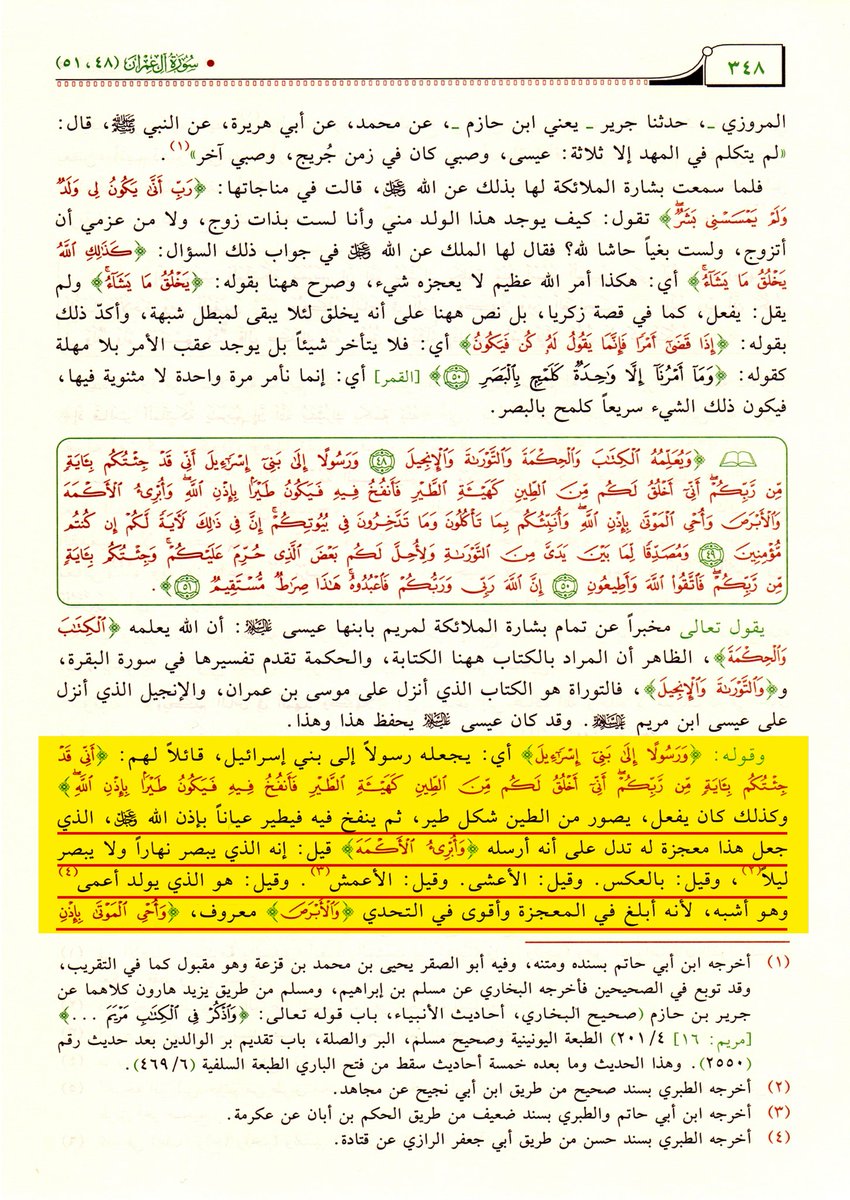 ٣٤٨
• سُورَةُ آلِ عِمْرَان (٤٨، ٥١)
المروزي ـ، حدثنا جرير ـ يعني ابن حازم ـ، عن محمد، عن أبي هريرة، عن النبي ﷺ، قال:
«لم يتكلم في المهد إلا ثلاثة: عيسى، وصبي كان في زمن جُريج، وصبي آخر»(١).
فلما سمعت بشارة الملائكة لها بذلك عن الله ﷿، قالت في مناجاتها: ﴿رَبِّ أَنَّىٰ يَكُونُ لِى وَلَدٌ
وَلَمْ يَمْسَسْنِى بَشَرٌۖ﴾ تقول: كيف يوجد هذا الولد مني وأنا لست بذات زوج، ولا من عزمي أن
أتزوج، ولست بغياً حاشا لله؟ فقال لها الملك عن الله ﷿ في جواب ذلك السؤال: ﴿كَذَٰلِكِ ٱللَّهُ
يَخْلُقُ مَا يَشَآءُۚ﴾ أي: هكذا أمر الله عظيم لا يعجزه شيء، وصرح ههنا بقوله: ﴿يَخْلُقُ مَا يَشَآءُۚ﴾ ولم
يقل: يفعل، كما في قصة زكريا، بل نص ههنا على أنه يخلق لئلا يبقى لمبطل شبهة، وأكدّ ذلك
بقوله: ﴿إِذَا قَضَىٰٓ أَمْرًا فَإِنَّمَا يَقُولُ لَهُۥ كُن فَيَكُونُ﴾ أي: فلا يتأخر شيئاً بل يوجد عقب الأمر بلا مهلة
كقوله: ﴿وَمَآ أَمْرُنَآ إِلَّا وَٰحِدَةٌ كَلَمْحٍۭ بِٱلْبَصَرِ ٥٠﴾ [القمر] أي: إنما نأمر مرة واحدة لا مثنوية فيها،
فيكون ذلك الشيء سريعاً كلمح بالبصر.
﴿وَيُعَلِّمُهُ ٱلْكِتَٰبَ وَٱلْحِكْمَةَ وَٱلتَّوْرَىٰةَ وَٱلْإِنجِيلَ ٤٨ وَرَسُولًا إِلَىٰ بَنِىٓ إِسْرَٰٓءِيلَ أَنِّى قَدْ جِئْتُكُم بِـَٔايَةٍ
مِّن رَّبِّكُمْۖ أَنِّىٓ أَخْلُقُ لَكُم مِّنَ ٱلطِّينِ كَهَيْـَٔةِ ٱلطَّيْرِ فَأَنفُخُ فِيهِ فَيَكُونُ طَيْرًۢا بِإِذْنِ ٱللَّهِۖ وَأُبْرِئُ ٱلْأَكْمَهَ
وَٱلْأَبْرَصَ وَأُحْىِ ٱلْمَوْتَىٰ بِإِذْنِ ٱللَّهِۖ وَأُنَبِّئُكُم بِمَا تَأْكُلُونَ وَمَا تَدَّخِرُونَ فِى بُيُوتِكُمْۚ إِنَّ فِى ذَٰلِكَ لَـَٔايَةً لَّكُمْ إِن كُنتُم
مُّؤْمِنِينَ ٤٩ وَمُصَدِّقًا لِّمَا بَيْنَ يَدَىَّ مِنَ ٱلتَّوْرَىٰةِ وَلِأُحِلَّ لَكُم بَعْضَ ٱلَّذِى حُرِّمَ عَلَيْكُمْۚ وَجِئْتُكُم بِـَٔايَةٍ
مِّن رَّبِّكُمْۖ فَٱتَّقُوا۟ ٱللَّهَ وَأَطِيعُونِ ٥٠ إِنَّ ٱللَّهَ رَبِّى وَرَبُّكُمْ فَٱعْبُدُوهُۗ هَٰذَا صِرَٰطٌ مُّسْتَقِيمٌ ٥١﴾.
يقول تعالى مخبراً عن تمام بشارة الملائكة لمريم بابنها عيسى ﵇: أن الله يعلمه ﴿ٱلْكِتَٰبَ
وَٱلْحِكْمَةَ﴾، الظاهر أن المراد بالكتاب ههنا الكتابة، والحكمة تقدم تفسيرها في سورة البقرة،
و﴿وَٱلتَّوْرَىٰةَ وَٱلْإِنجِيلَ﴾، فالتوراة هو الكتاب الذي أنزل على موسى بن عمران، والإنجيل الذي أنزل
على عيسى ابن مريم ﵉. وقد كان عيسى ﵇ يحفظ هذا وهذا.
وقوله: ﴿وَرَسُولًا إِلَىٰ بَنِىٓ إِسْرَٰٓءِيلَ﴾ أي: يجعله رسولاً إلى بني إسرائيل، قائلاً لهم: ﴿أَنِّى قَدْ
جِئْتُكُم بِـَٔايَةٍ مِّن رَّبِّكُمْۖ أَنِّىٓ أَخْلُقُ لَكُم مِّنَ ٱلطِّينِ كَهَيْـَٔةِ ٱلطَّيْرِ فَأَنفُخُ فِيهِ فَيَكُونُ طَيْرًۢا بِإِذْنِ ٱللَّهِۖ﴾
وكذلك كان يفعل، يصور من الطين شكل طير، ثم ينفخ فيه فيطير عياناً بإذن الله ﷿، الذي
جعل هذا معجزة له تدل على أنه أرسله ﴿وَأُبْرِئُ ٱلْأَكْمَهَ﴾ قيل: إنه الذي يبصر نهاراً ولا يبصر
ليلاً(٢)، وقيل: بالعكس. وقيل: الأعشى. وقيل: الأعمش(٣). وقيل: هو الذي يولد أعمى(٤)
وهو أشبه، لأنه أبلغ في المعجزة وأقوى في التحدي ﴿وَٱلْأَبْرَصَ﴾ معروف، ﴿وَأُحْىِ ٱلْمَوْتَىٰ بِإِذْنِ
(١) أخرجه ابن أبي حاتم بسنده ومتنه، وفيه أبو الصقر يحيى بن محمد بن قزعة وهو مقبول كما في التقريب،
وقد توبع في الصحيحين فأخرجه البخاري عن مسلم بن إبراهيم، ومسلم من طريق يزيد هارون كلاهما عن
جرير بن حازم (صحيح البخاري، أحاديث الأنبياء، باب قوله تعالى: ﴿وَٱذْكُرْ فِى ٱلْكِتَٰبِ مَرْيَمَ ...﴾
[مريم: ١٦] ٢٠١/٤) الطبعة اليونينية وصحيح مسلم، البر والصلة، باب تقديم بر الوالدين بعد حديث رقم
(٢٥٥٠). وهذا الحديث وما بعده خمسة أحاديث سقط من فتح الباري الطبعة السلفية (٤٦٩/٦).
(٢) أخرجه الطبري بسند صحيح من طريق ابن أبي نجيح عن مجاهد.
(٣) أخرجه ابن أبي حاتم والطبري بسند ضعيف من طريق الحكم بن أبان عن عكرمة.
(٤) أخرجه الطبري بسند حسن من طريق أبي جعفر الرازي عن قتادة.